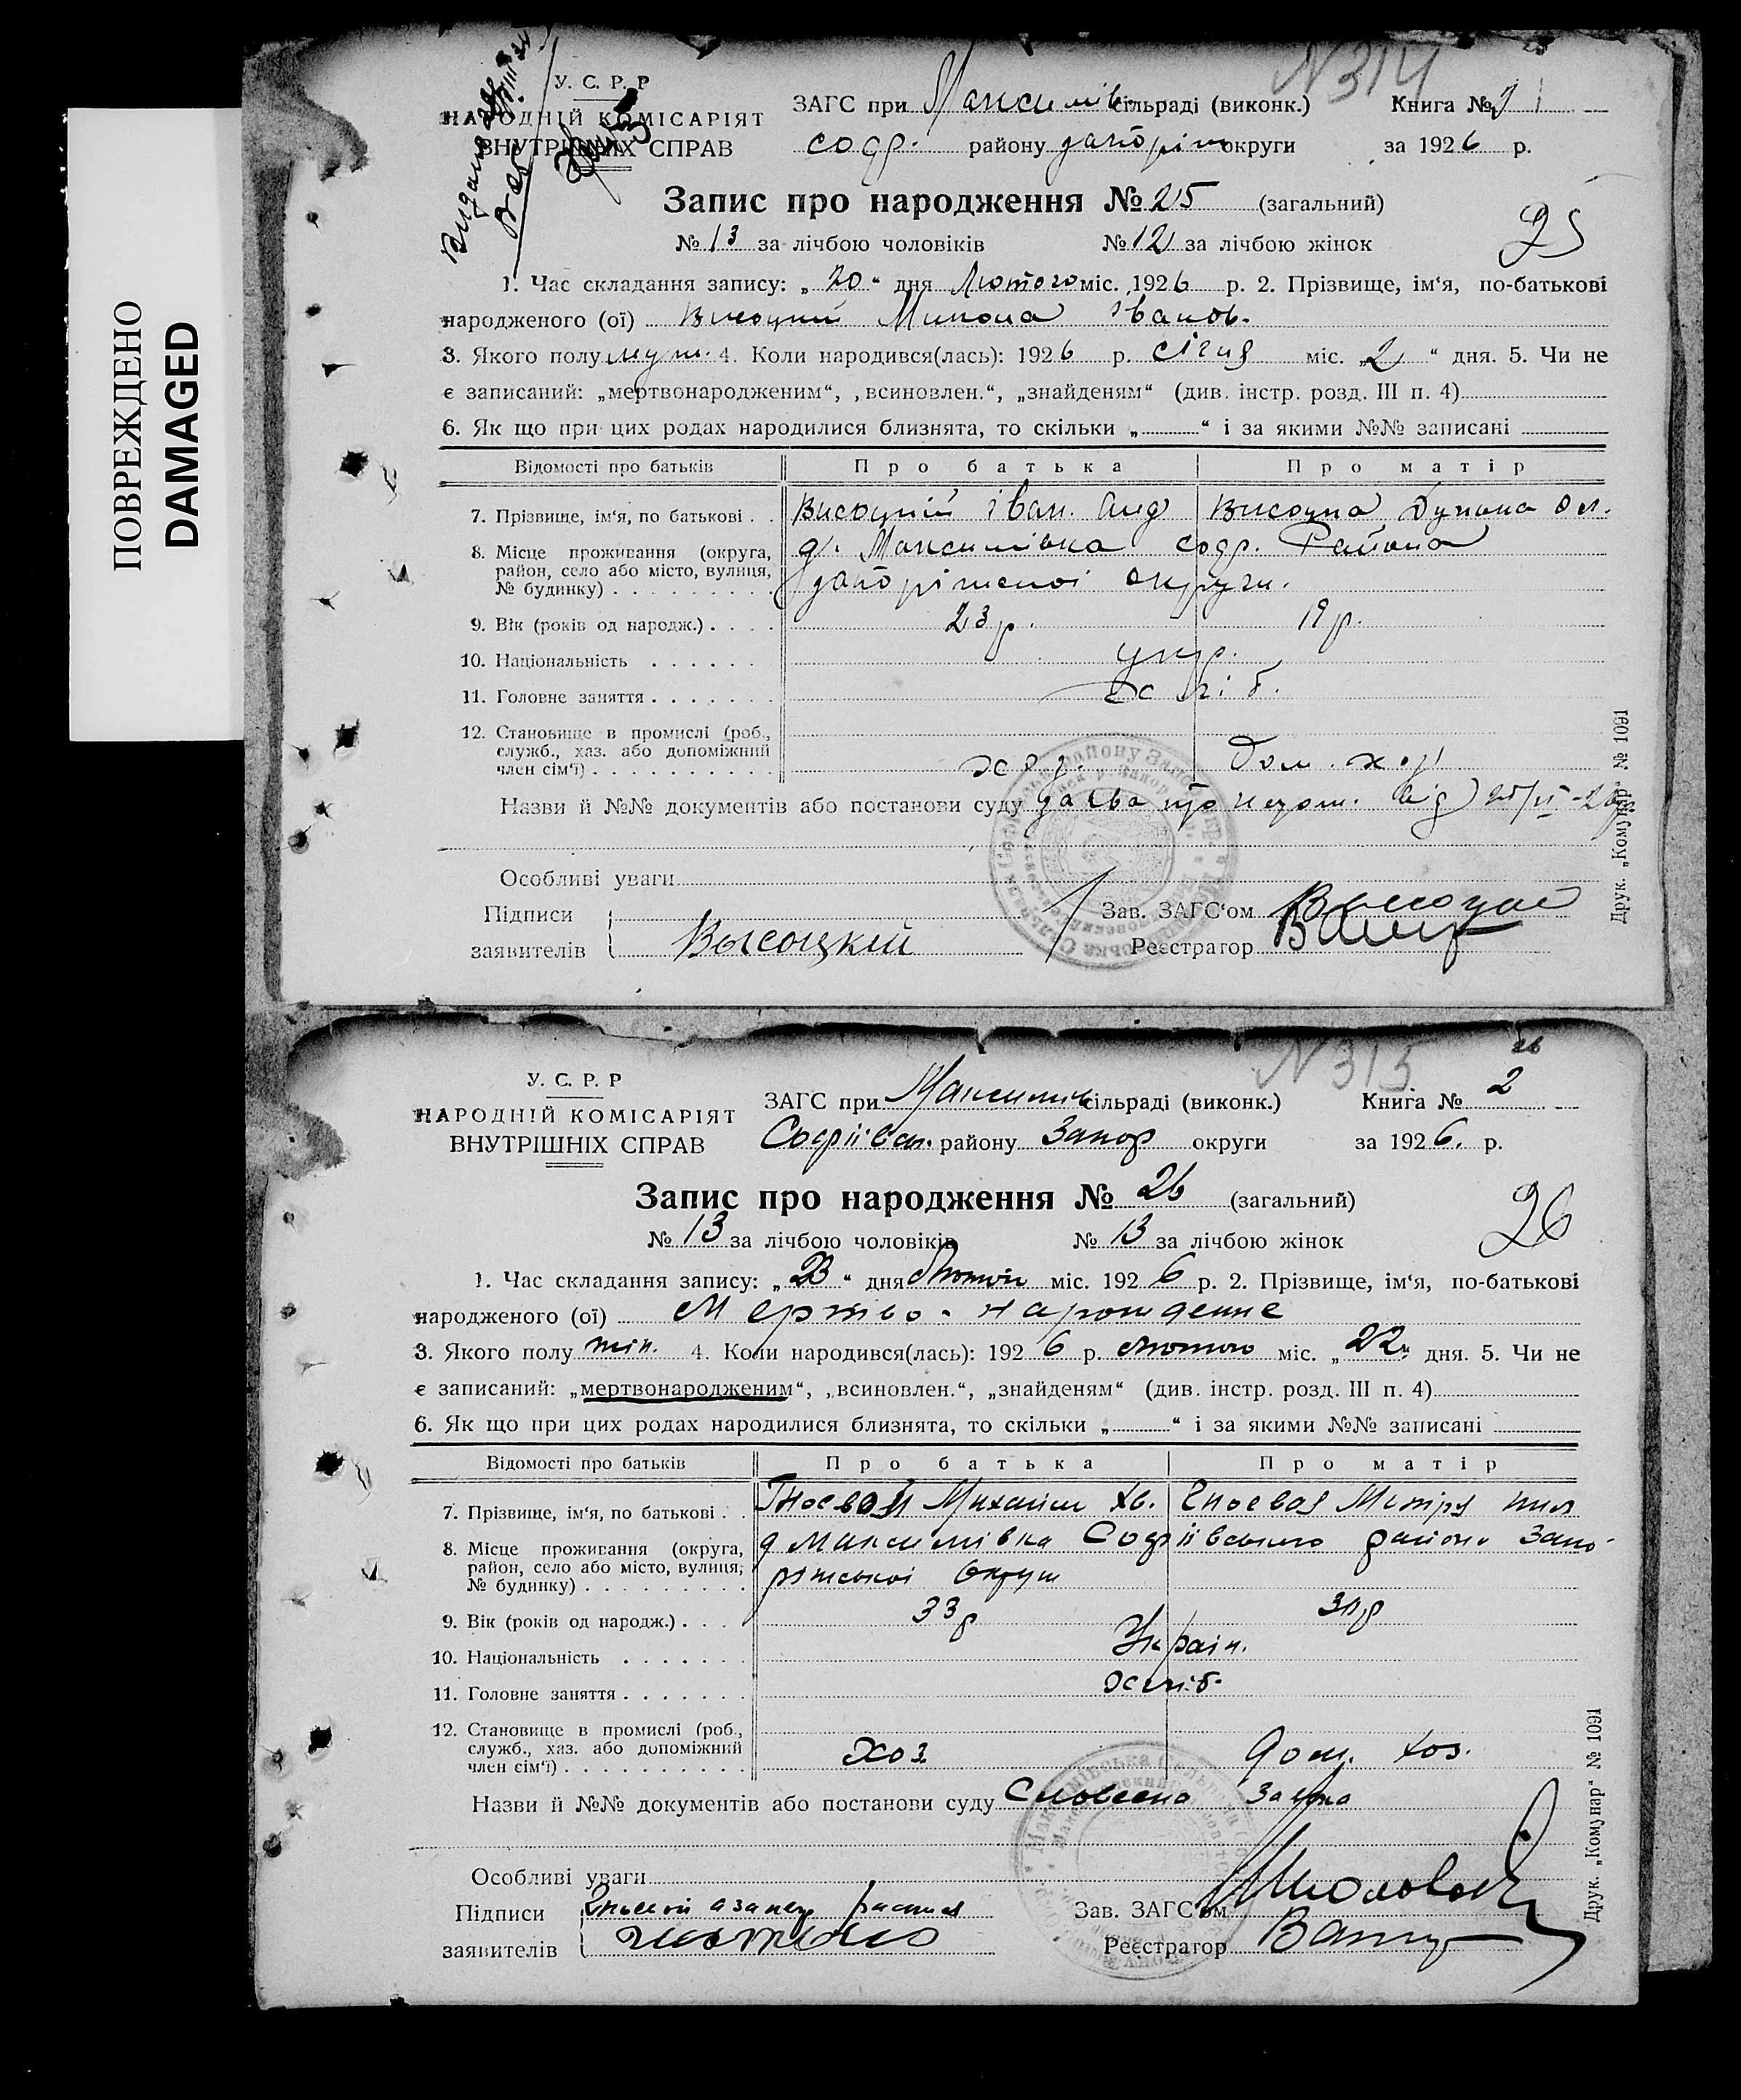 ПОВРЕЖДЕНО
DAMAGED
N 314
У. С. Р. Р
НАРОДНІЙ КОМІСАРІЯТ
ВНУТРІШНІХ СПРАВ
ЗАГС при Максимів сільраді (виконк.) Книга №
соф. району запоріж округи за 1926 р.
Запис про народження № 25 (загальний)
25
№ 13 за лічбою чоловіків № 12 за лічбою жінок
1. Час складання запису: „ 20 “ дня Лютого міс. 1926 р. 2. Прізвище, ім‘я, по-батькові
народженого (ої) Висоцкий Микола Іванов.
3. Якого полу муж. 4. Коли народився(лась): 1926 р. січня міс. „ 2 “ дня. 5. Чи не
є записаний: „мертвонародженим“, „всиновлен.“, „знайденям“ (див. інстр. розд. III п. 4)
6. Як що при цих родах народилися близнята, то скільки „ “ і за якими №№ записані
Відомості про батьків Про батька Про матір
7. Прізвище, ім‘я, по батькові . . Висоцкий Іван. Анд Висоцка
8. Місце проживання (округа, район, село або місто, вулиця, № будинку) . . . . . . . . . д. Максимівка соф. Района
запоріжської округи.
9. Вік (років од народж.) . . . . 23 р. 19 р.
10. Національність . . . . . . укр.
11. Головне заняття . . . . . . . хліб.
12. Становище в промислі (роб., служб., хаз. або допоміжний член сім‘ї) . . . . . . . . . . хоз. Дом. хоз
Назви й №№ документів або постанови суду заява про народж. від
Особливі уваги
Підписи заявителів Высоцкий
Зав. ЗАГС‘ом
Реєстратор
Друк. „Комунар“ № 1091
N 315
26
У. С. Р. Р
НАРОДНІЙ КОМІСАРІЯТ
ВНУТРІШНІХ СПРАВ
ЗАГС при Максимів сільраді (виконк.) Книга № 2
Софіївск. району Запор округи за 1926. р.
Запис про народження № 26 (загальний)
26
№ 13 за лічбою чоловіків № 13 за лічбою жінок
1. Час складання запису: „ 23 “ дня Лютого міс. 1926 р. 2. Прізвище, ім‘я, по-батькові
народженого (ої) Мертво-нарождение
3. Якого полу жін. 4. Коли народився(лась): 1926 р. Лютого міс. „ 22 “ дня. 5. Чи не
є записаний: „мертвонародженим“, „всиновлен.“, „знайденям“ (див. інстр. розд. III п. 4)
6. Як що при цих родах народилися близнята, то скільки „ “ і за якими №№ записані
Відомості про батьків Про батька Про матір
7. Прізвище, ім‘я, по батькові . . Гноевой Михайло Хв. Гноевая
8. Місце проживання (округа, район, село або місто, вулиця, № будинку) . . . . . . . . . д Максимівка Софіївського району Запо-
ріжської Округи
9. Вік (років од народж.) . . . . 33 р
10. Національність . . . . . . Україн.
11. Головне заняття . . . . . . . Хліб.
12. Становище в промислі (роб., служб., хаз. або допоміжний член сім‘ї) . . . . . . . . . . Хоз. дом. хоз.
Назви й №№ документів або постанови суду Словесна Заява
Особливі уваги
Підписи заявителів
Зав. ЗАГС‘ом
Реєстратор
Друк. „Комунар“ № 1091